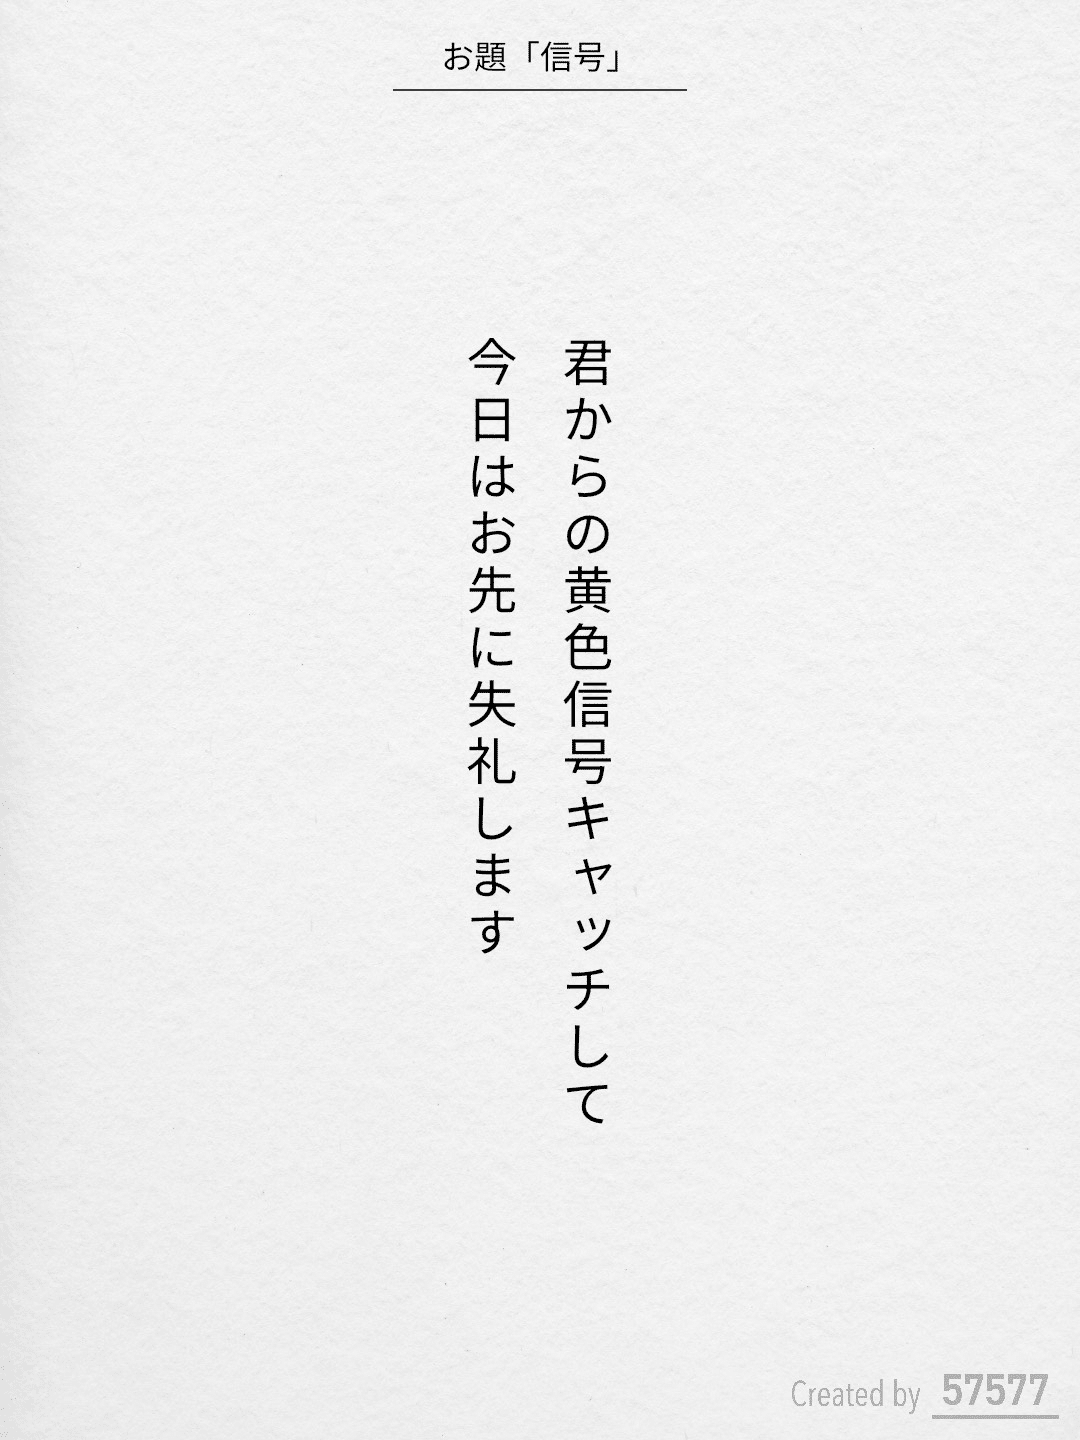 お題「信号」
君からの黄色信号キャッチして
今日はお先に失礼します
Created by 57577